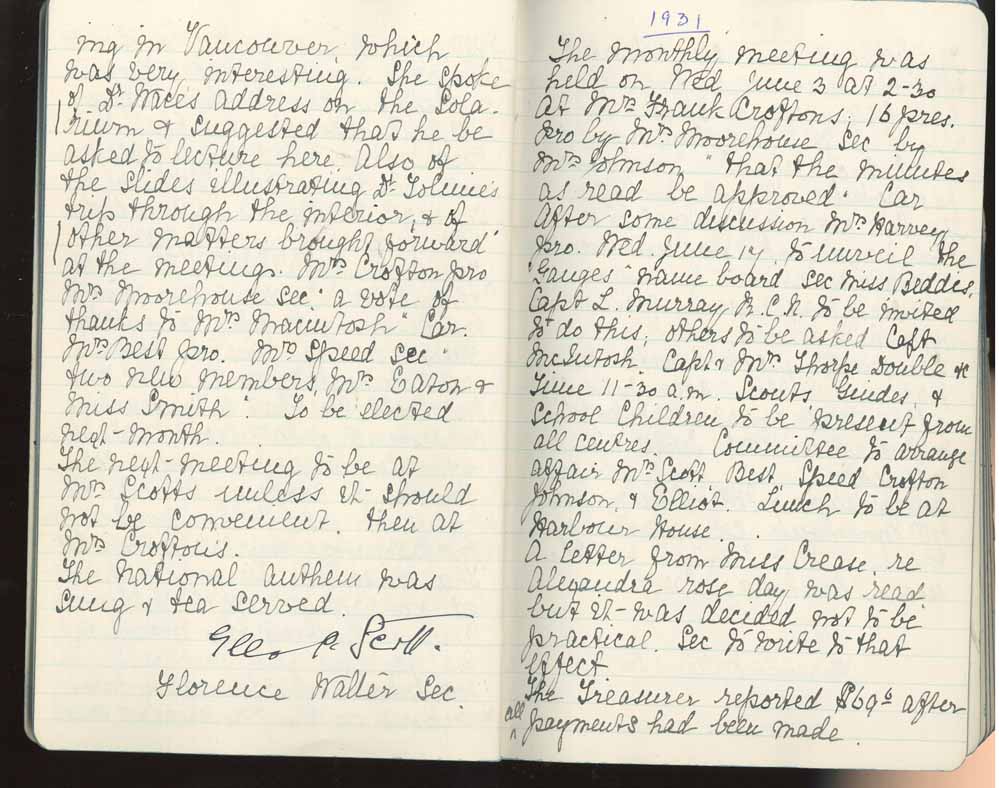 ing in Vancouver, which
was very interesting. She spoke
of Dr Wace's address on the Sola-
rium & suggested that he be
asked to lecture here. Also of
the slides illustrating Dr Tolmie's
trip through the interior, & of
other matters brought forward
at the meeting. Mrs Crofton pro
Mrs Moorehouse sec. "a vote of
thanks to Mrs Macintosh" Car.
Mrs Best pro. Mrs Speed Sec "
two new members, Mrs Eaton &
Miss Smith". To be elected
next month.
The next meeting to be at
Mrs Scotts unless it should
not be convenient. then at
Mrs Crofton's.
The National anthem was
sung & tea served.
Scott.
Florence Walter Sec.
1931
The monthly meeting was
held on Wed June 3 at 2-30
at Mrs Frank Croftons; 16 pres.
Pro by Mrs Moorehouse Sec by
Mrs Johnson "that the minutes
as read be approved" Car
After some discussion Mrs Harvey
pro. Wed. June 17. to unveil the
"Ganges" name board sec Miss Beddis.
Capt L. Murray R.C.N. to be invited
to do this; others to be asked Capt
McIntosh. Capt & Mrs Thorpe Double &c
Time 11-30 a.m. Scouts Guides, &
School Children to be present from
all centres. Committee to arrange
affair Mrs Scott, Best, Speed Crofton
Johnson, & Elliot. Lunch to be at
Harbour House.
A letter from Miss Crease. re
Alexandra rose day was read
but it was decided not to be
practical. Sec to write to that
effect
The Treasurer reported $69 after
all payments had been made.